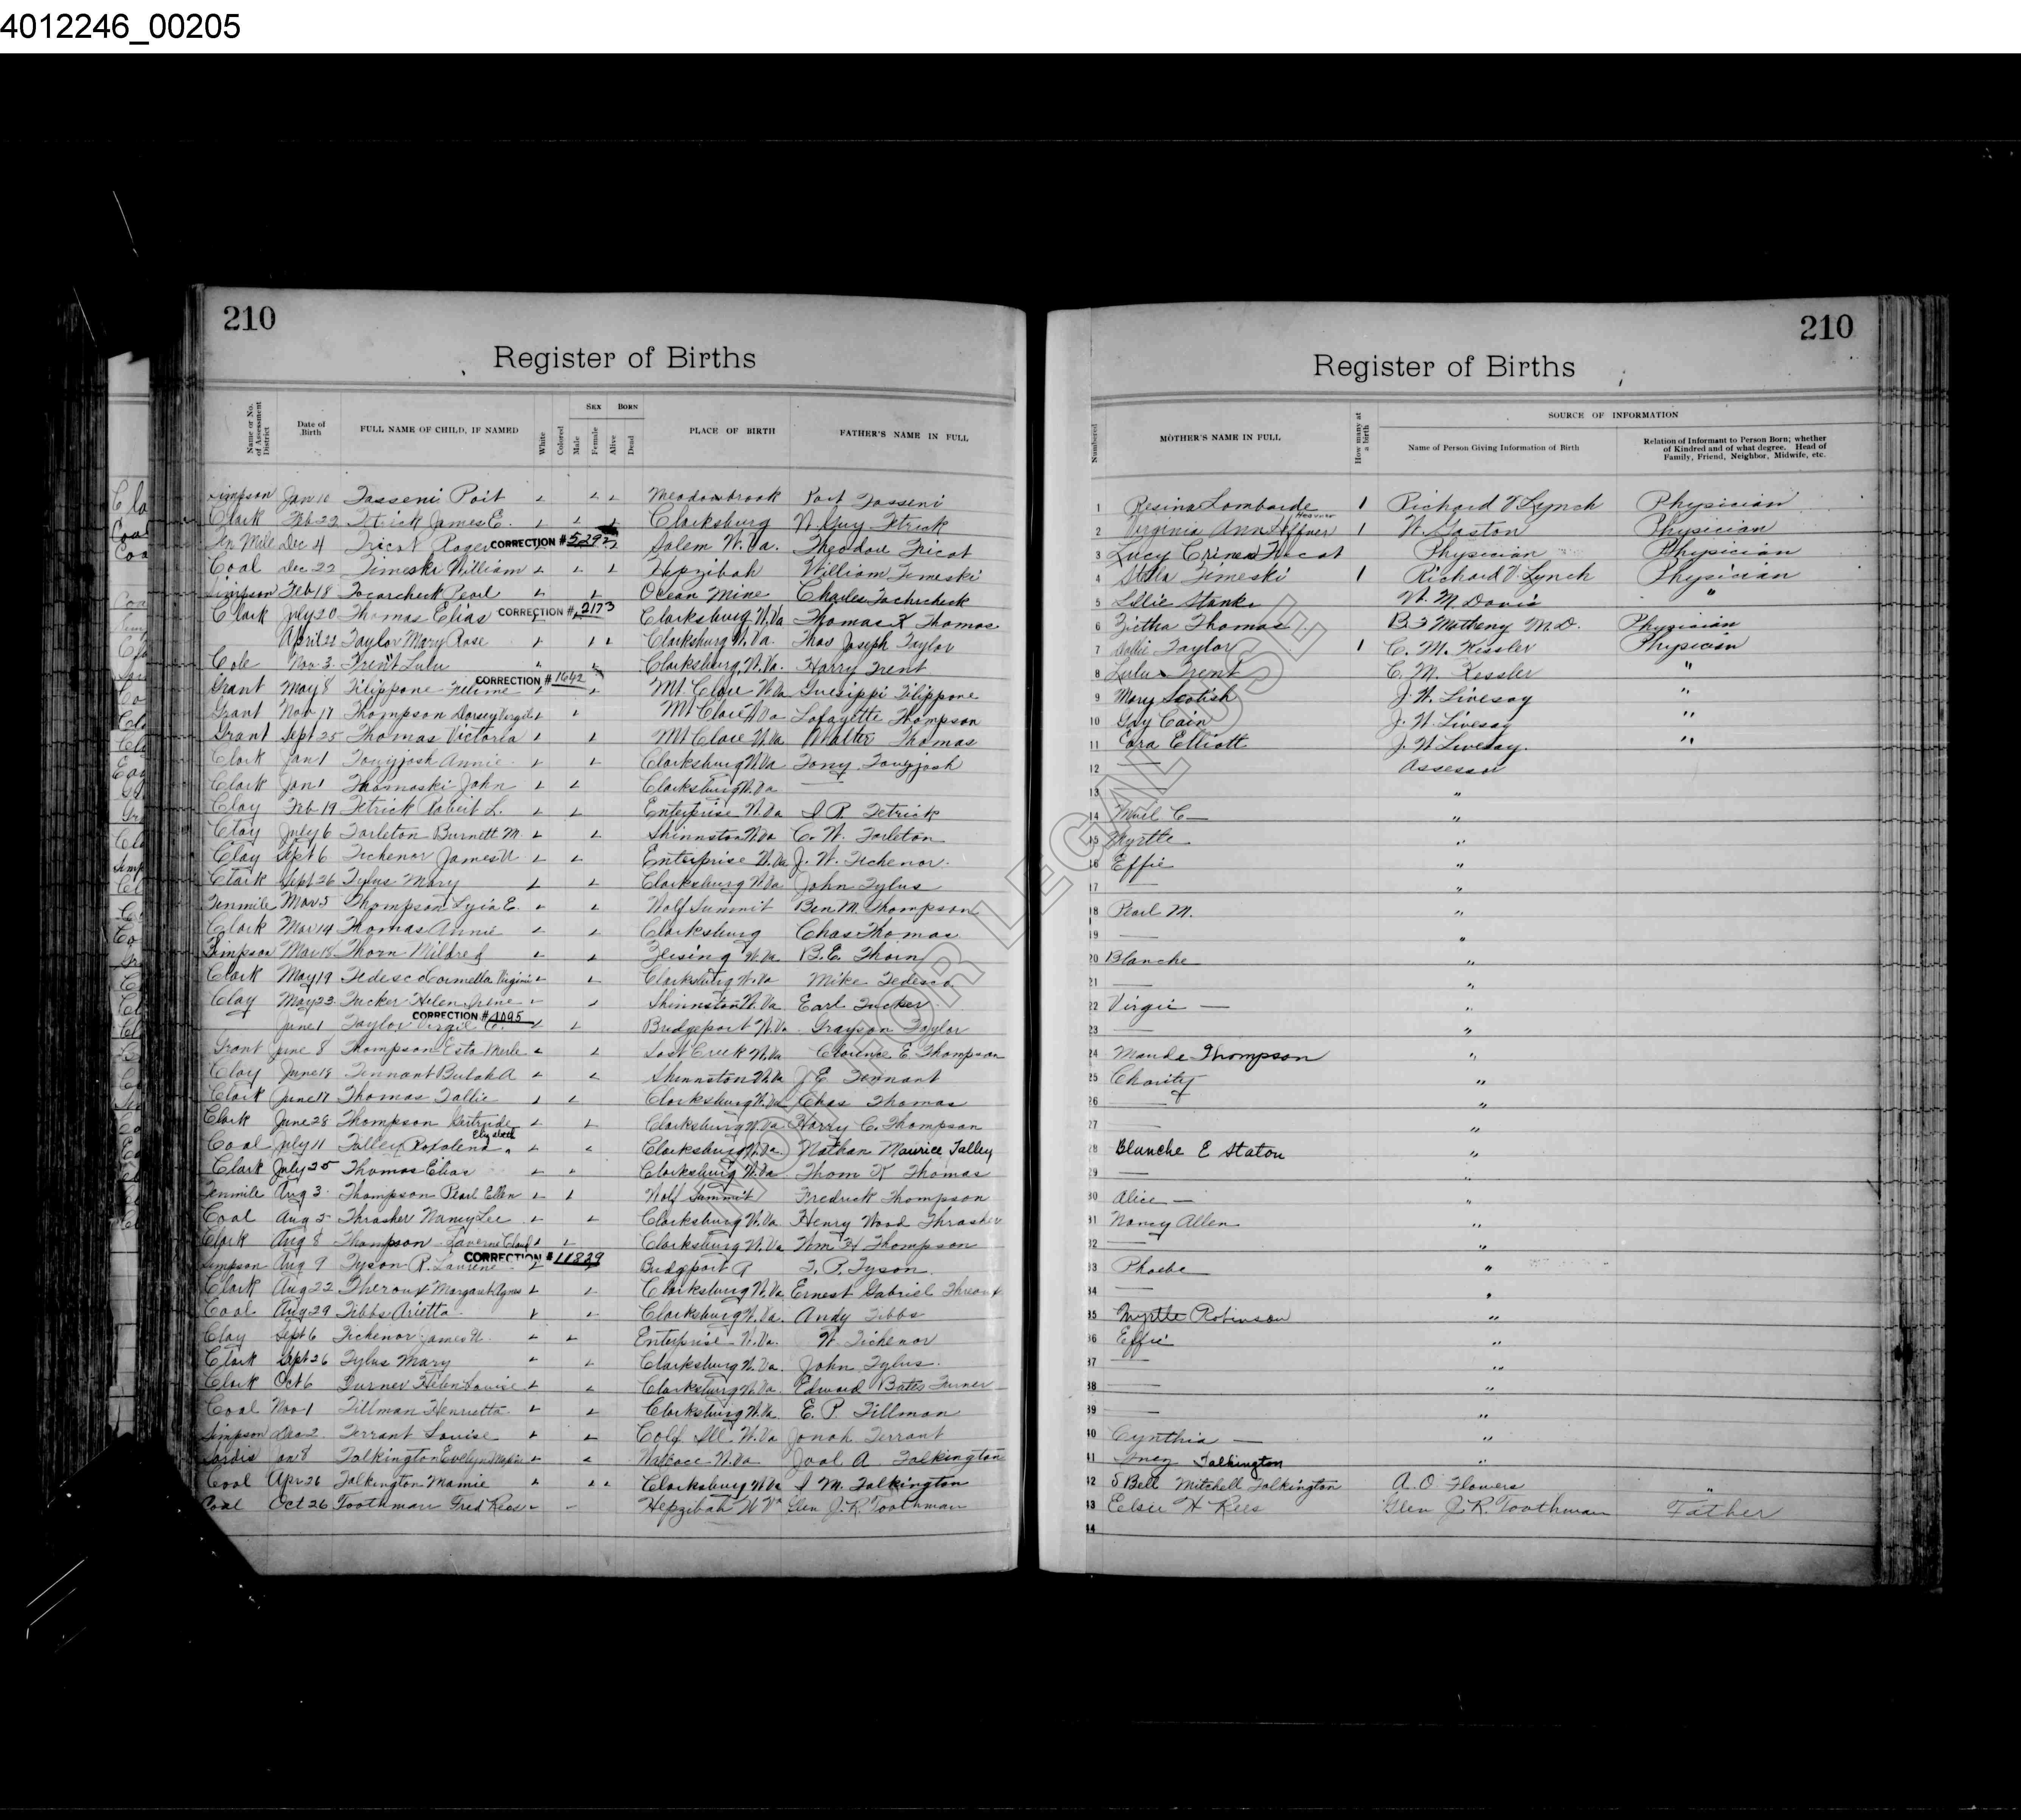 4012246_00205
210
Register of Births
Name or No. of Assessment District
Date of Birth
FULL NAME OF CHILD, IF NAMED
White
Colored
SEX
Male
Female
BORN
Alive
Dead
PLACE OF BIRTH
FATHER'S NAME IN FULL
Simpson Jan 10 Tasseni Poit Meadowbrook Tasseni
Clark Feb 22 Tetrick James E. Clarksburg W. Guy Tetrick
Ten Mile Dec 4 Tricot Roger CORRECTION #5292 Salem W. Va. Theodore Tricot
Coal Dec 22 Timeski William Hepzibah William Timeski
Simpson Feb 18 Tocarcheck Pearl Ocean Mine Charles
Clark July 20 Thomas Elias CORRECTION # 2173 Clarksburg W. Va Thomas K Thomas
April 22 Taylor Mary Rose Clarksburg W. Va. Thos Joseph Taylor
Cole Nov 3 Trent Lulu Clarksburg, W. Va. Harry Trent
Grant May 8 Filippone CORRECTION # 1642 Mt. Clare W Va Guesippi Filippone
Grant Nov 17 Thompson Dorsey Virgil Mt Clare W Va Lafayette Thompson
Grant Sept 25 Thomas Victoria Mt Clare W. Va Walter Thomas
Clark Jan 1 Annie Clarksburg W. Va Tony
Clark Jan 1 Thomaski John Clarksburg W. Va —
Clay Feb 19 Tetrick Robert L. Enterprise W. Va I P. Tetrick
Clay July 6 Tarleton Burnett M. Shinnston W Va C. W. Tarleton
Clay Sept 6 Tichenor James W Enterprise W. Va J. W. Tichenor.
Clark Sept 26 Tylus Mary Clarksburg W. Va John Tylus
Tenmile Mar 5 Thompson E. Wolf Summit Ben M. Thompson
Clark Mar 14 Thomas Annie Clarksburg Chas Thomas
Simpson Mar 18 Thorn Mildred W. Va. B. E. Thorn
Clark May 19 Tedesco Virginia Clarksburg W. Va Mike Tedesco
Clay May 23 Tucker Helen Irene Shinnston W. Va Earl Tucker
June 1 Taylor Virgil C. CORRECTION # 4095 Bridgeport W. Va. Grayson Taylor
Grant June 8 Thompson Esta Merle Lost Creek W. Va Clarence E Thompson
Clay June 18 Tennant Bulah A Shinnston W. Va J. E. Tennant
Clark June 17 Thomas Tallie Clarksburg W. Va Chas Thomas
Clark June 28 Thompson Gertrude Clarksburg W. Va Harry C. Thompson
Coal July 11 Talley Rosalena Elizabeth Clarksburg W. Va. Nathan Maurice Talley
Clark July 25 Thomas Elias Clarksburg W. Va Thom K Thomas
Tenmile Aug 3 Thompson Pearl Ellen Wolf Summit Fredrick Thompson
Coal Aug 5 Thrasher Nancy Lee Clarksburg W. Va Henry Wood Thrasher
Clark Aug 8 Thompson Laverne Clarksburg W. Va Wm H Thompson
Simpson Aug 9 Tyson R. CORRECTION # 11839 Bridgeport T. P. Tyson
Clark Aug 22 Margaret Agnes Clarksburg W. Va Ernest Gabriel
Coal Aug 29 Tibbs Arietta Clarksburg W. Va. Andy Tibbs
Clay Sept 6 Tichenor James W. Enterprise W. Va. W. Tichenor
Clark Sept 26 Tylus Mary Clarksburg W. Va. John Tylus.
Clark Oct 6 Turner Helen Louise Clarksburg W. Va. Edward Bates Turner
Coal Nov 1 Tillman Henrietta Clarksburg W. Va. E. P. Tillman
Simpson Dec 2 Terrant Louise W. Va Jonah Terrant
Sardis Jan 8 Talkington Evelyn Wallace W. Va Joal A Talkington
Coal Apr 26 Talkington Mamie Clarksburg W Va I M. Talkington
Coal Oct 26 Toothman Fred Rees Hepzibah W Va Glen J. R. Toothman
210
Register of Births
Numbered
MOTHER'S NAME IN FULL
How many at a birth
SOURCE OF INFORMATION
Name of Person Giving Information of Birth
Relation of Informant to Person Born; whether of Kindred and of what degree. Head of Family, Friend, Neighbor, Midwife, etc.
1 Resina Lombarde 1 Richard V Lynch Physician
2 Virginia Ann Heffner 1 W. Gaston Physician
3 Lucy Tricot Physician Physician
4 Stella Timeski 1 Richard V. Lynch Physician
5 Lillie W. M Davis "
6 Zietha Thomas B F Matheny M.D. Physician
7 Taylor 1 C. M. Kessler Physician
8 Lulu Trent C. M. Kessler "
9 Mary Scotish J. W. Livesay "
10 Gay Cain J. W. Livesay "
11 Cora Elliott J. W Livesay. "
12 — Assessor
13 "
14 C — "
15 Myrtle "
16 Effie "
17 — "
18 Pearl M. "
19 — "
20 Blanche "
21 — "
22 Virgie — "
23 — "
24 Maude Thompson "
25 Charity "
26 — "
27 — "
28 Blanche E Staton "
29 — "
30 Alice — "
31 Nancy Allen "
32 — "
33 Phoebe "
34 — "
35 Myrtle Robinson "
36 Effie "
37 — "
38 — "
39 — "
40 Cynthia — "
41 Talkington "
42 Bell Mitchell Talkington A. O Flowers "
43 Elsie H Rees Glen J. R. Toothman Father
44
NOT FOR LEGAL USE